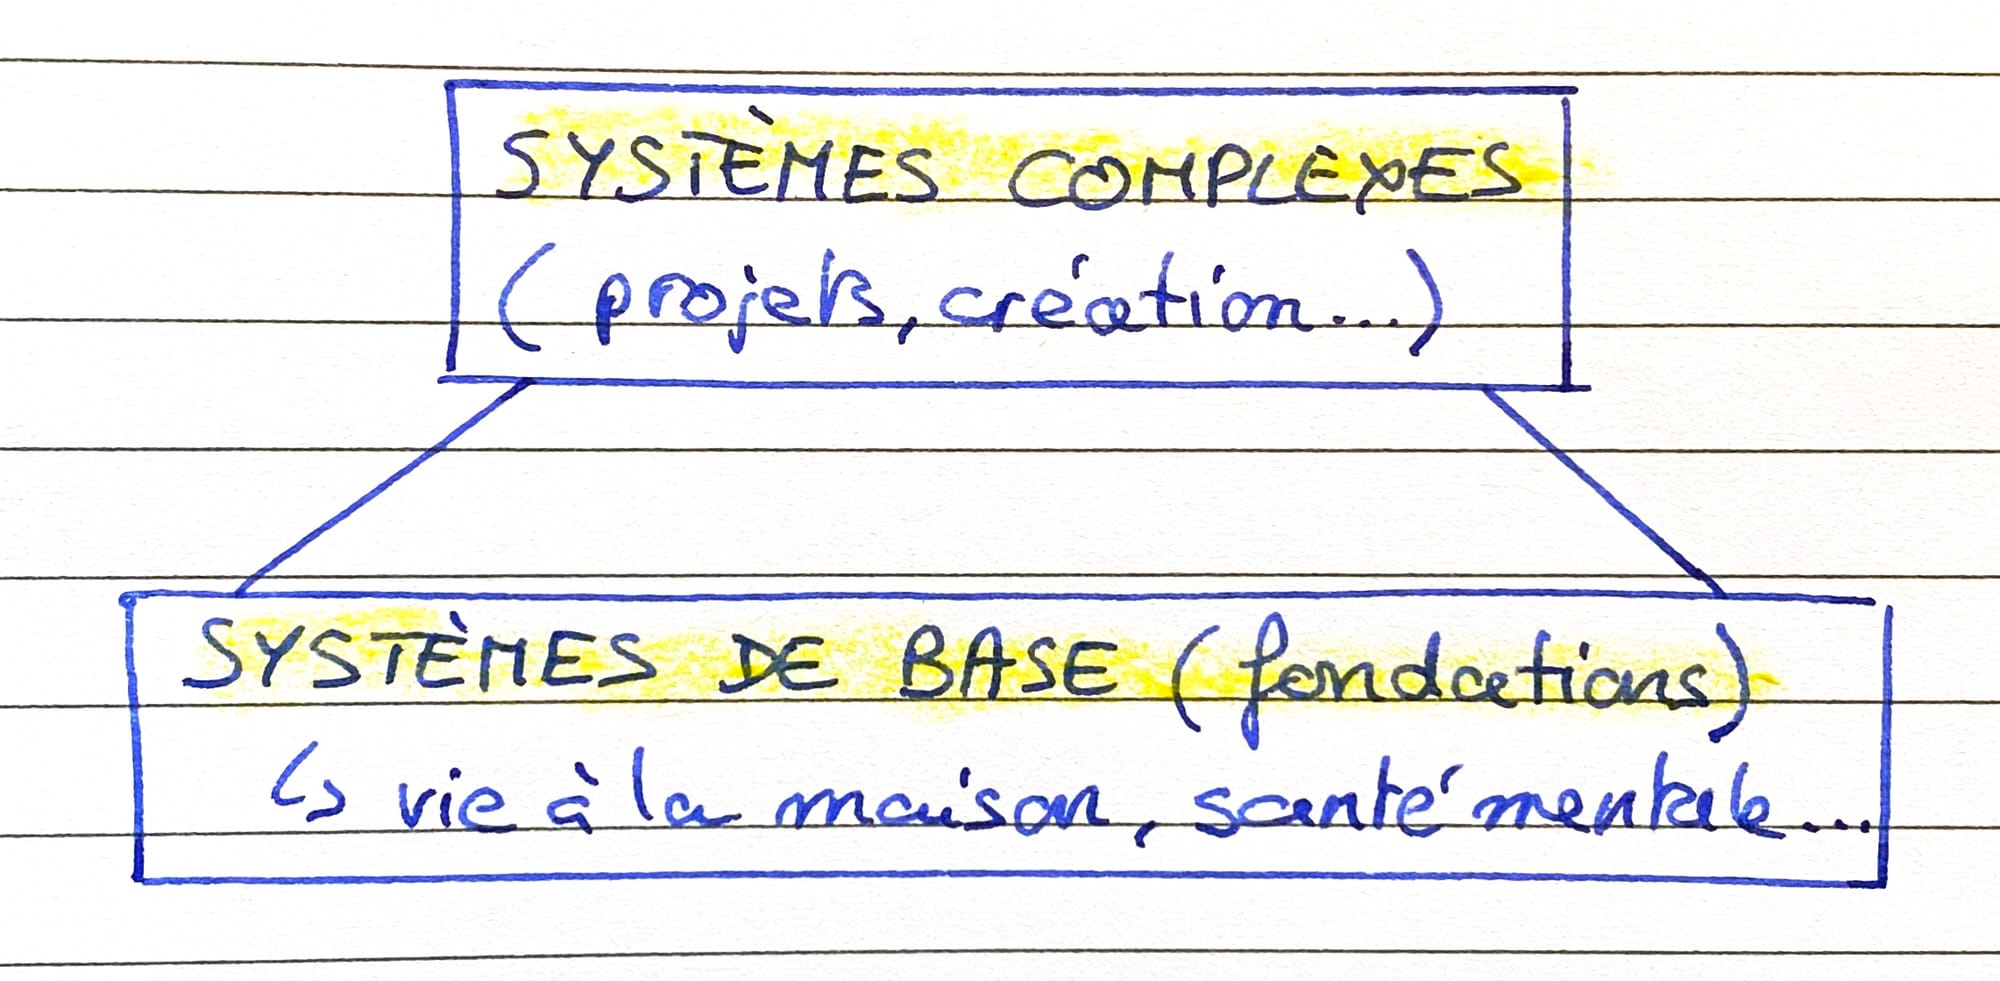 SYSTÈMES COMPLEXES
(projets, création...)
SYSTÈMES DE BASE (fondations)
↳ vie à la maison, santé mentale...